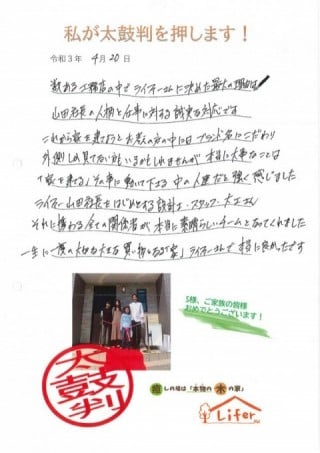 私が太鼓判を押します！
令和3年 4月20日
数ある工務店の中でライファーさんに決めた最大の理由は
山田社長の人柄と仕事に対する誠実な対応です
これから家を建てようとお考えの方の中にはブランド名にこだわり
外側しか見てない
かもしれませんが 本当に大事なことは
「家を建てる」その事に動いて下さる 中の人達だと強く感じました
ライファー山田社長をはじめとする設計士・スタッフ・大工さん
それに携わる全ての関係者が本当に素晴らしいチームとなってくれました
一生に一度の大切な大きな買い物となる「家」ライファーさんで本当に良かったです
S様、ご家族の皆様
おめでとうございます！
太鼓判
癒しの場は「本物の木の家」
Lifer